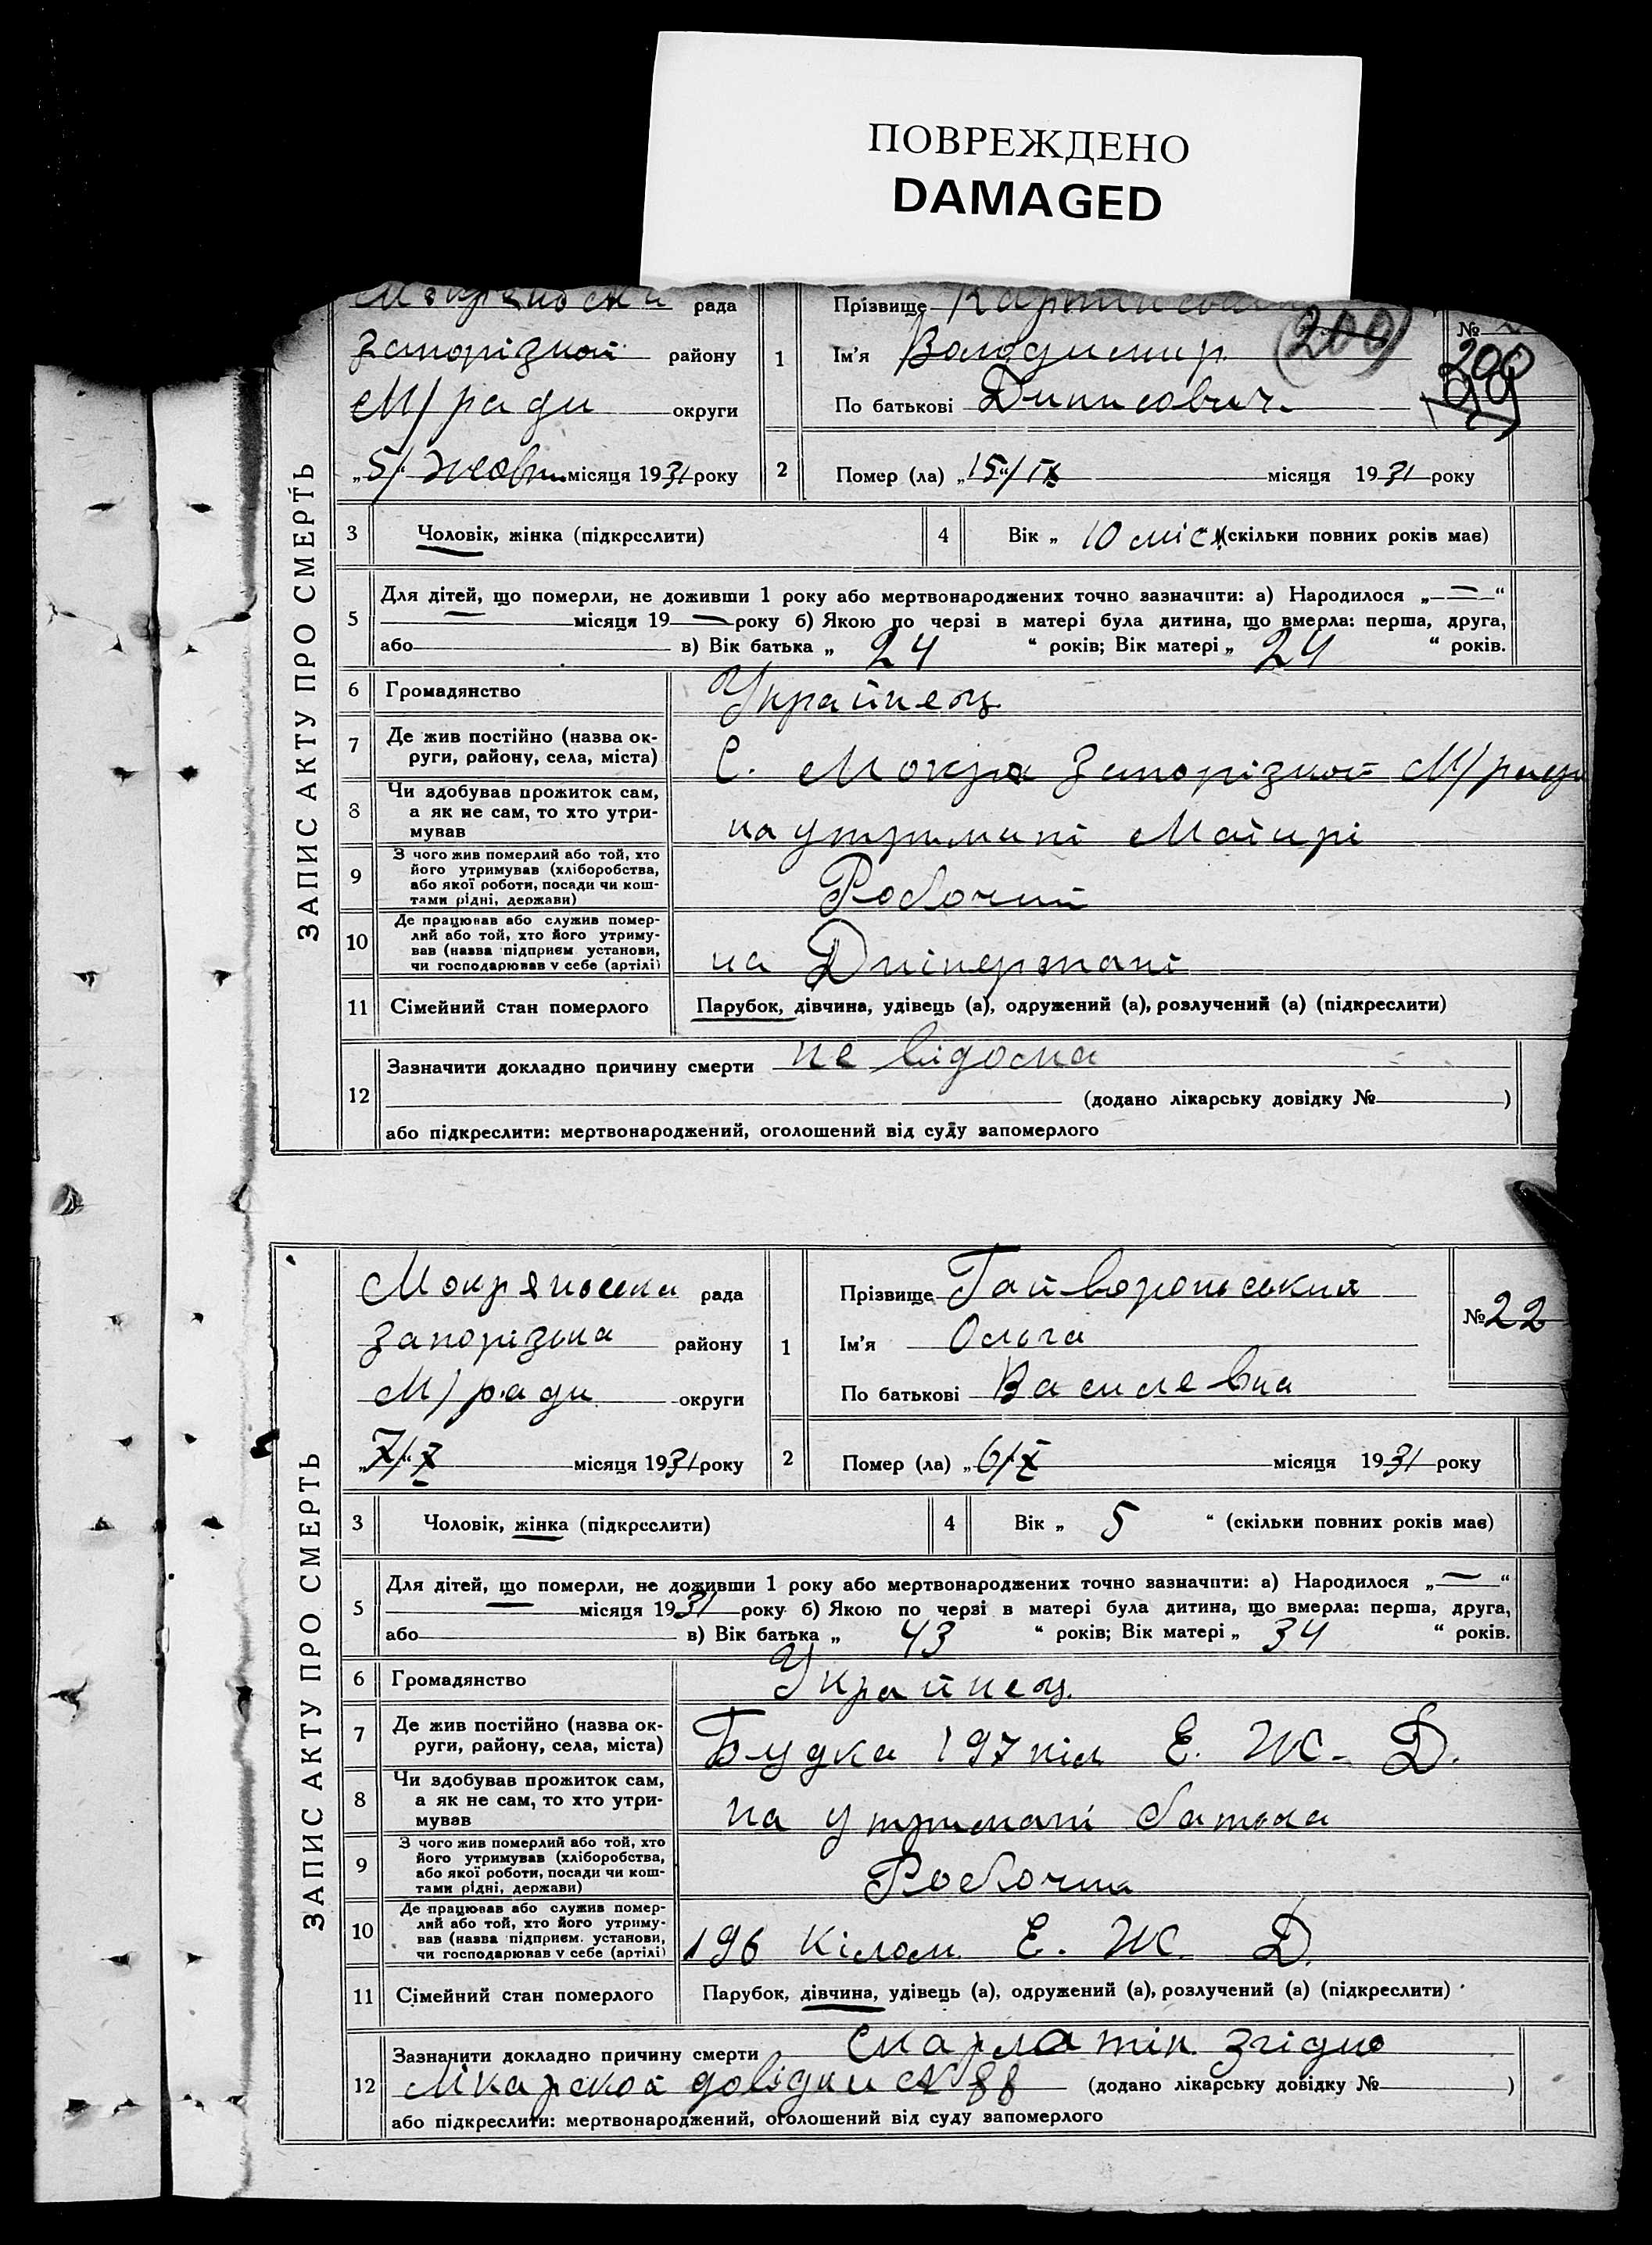 ПОВРЕЖДЕНО
DAMAGED
ЗАПИС АКТУ ПРО СМЕРТЬ
рада
Запорізкой району
М/ради округи
„5/“ жовтн місяця 1931 року
1
Прізвище
Ім'я Володимир
По батькові Динисович
(200)
№
200
99
2
Помер (ла) „15“/IX місяця 1931 року
3 Чоловік, жінка (підкреслити)
4 Вік „ 10 міс (скільки повних років має)
5 Для дітей, що померли, не доживши 1 року або мертвонароджених точно зазначити: а) Народилося „—“
— місяця 19— року б) Якою по черзі в матері була дитина, що вмерла: перша, друга,
або в) Вік батька „ 24 “ років; Вік матері „ 24 “ років.
6 Громадянство Украйнец
7 Де жив постійно (назва ок-
руги, району, села, міста) С. Мокра Запорізкой М/ради
8 Чи здобував прожиток сам,
а як не сам, то хто утри-
мував на утримані Матирі
9 З чого жив померлий або той, хто
його утримував (хліборобства,
або якої роботи, посади чи кош-
тами рідні, держави) Робочий
10 Де працював або служив помер-
лий або той, хто його утриму-
вав (назва підприєм. установи,
чи господарював у себе (артілі) на
11 Сімейний стан померлого Парубок, дівчина, удівець (а), одружений (а), розлучений (а) (підкреслити)
12 Зазначити докладно причину смерти не відома
(додано лікарську довідку № )
або підкреслити: мертвонароджений, оголошений від суду запомерлого
ЗАПИС АКТУ ПРО СМЕРТЬ
Мокрянська рада
Запорізька району
М/ради округи
„7/“X місяця 1931 року
1
Прізвище Гайворонський
Ім'я Ольга
По батькові Василевна
№ 22
2
Помер (ла) „6/X місяця 1931 року
3 Чоловік, жінка (підкреслити)
4 Вік „ 5 “ (скільки повних років має)
5 Для дітей, що померли, не доживши 1 року або мертвонароджених точно зазначити: а) Народилося „—“
— місяця 1931 року б) Якою по черзі в матері була дитина, що вмерла: перша, друга,
або в) Вік батька „ 43 “ років; Вік матері „ 34 “ років.
6 Громадянство Украйнец
7 Де жив постійно (назва ок-
руги, району, села, міста) Будка 197 кіл Е. Ж. Д.
8 Чи здобував прожиток сам,
а як не сам, то хто утри-
мував на утримані батька
9 З чого жив померлий або той, хто
його утримував (хліборобства,
або якої роботи, посади чи кош-
тами рідні, держави) Робочий
10 Де працював або служив помер-
лий або той, хто його утриму-
вав (назва підприєм. установи,
чи господарював у себе (артілі) 196 Кілом. Е. Ж. Д.
11 Сімейний стан померлого Парубок, дівчина, удівець (а), одружений (а), розлучений (а) (підкреслити)
12 Зазначити докладно причину смерти скарлатін згідно
Мікарской довідки № 88 (додано лікарську довідку № )
або підкреслити: мертвонароджений, оголошений від суду запомерлого